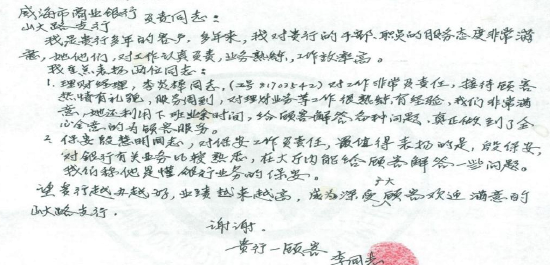 威海市商业银行
山大路支行 及贵同志:
我是贵行多年的客户,多年来,我对贵行的干部、职员的服务态度非常满
意,她他们,对工作认真负责,业务熟练,工作效率高。
我重点表扬两位同志:
1. 理财经理,李 同志,(工号 81702542)对工作非常负责任,接待顾客
热情有礼貌,服务周到,对理财业务等工作很熟练有经验,我们非常满
意,她还利用下班业余时间,给顾客解答各种问题,真正做到了全
心全意的为顾客服务。
2. 保安殷慧明同志,对保安工作负责任,最值得表扬的是,殷保安
对银行有关业务比较熟悉,在大厅内能给顾客解答一些问题。
我们称他是懂银行业务的保安。
望贵行越办越好,业绩越来越高,成为深受广大顾客欢迎 满意的
山大路支行。
谢谢.
贵行一顾客
李同志